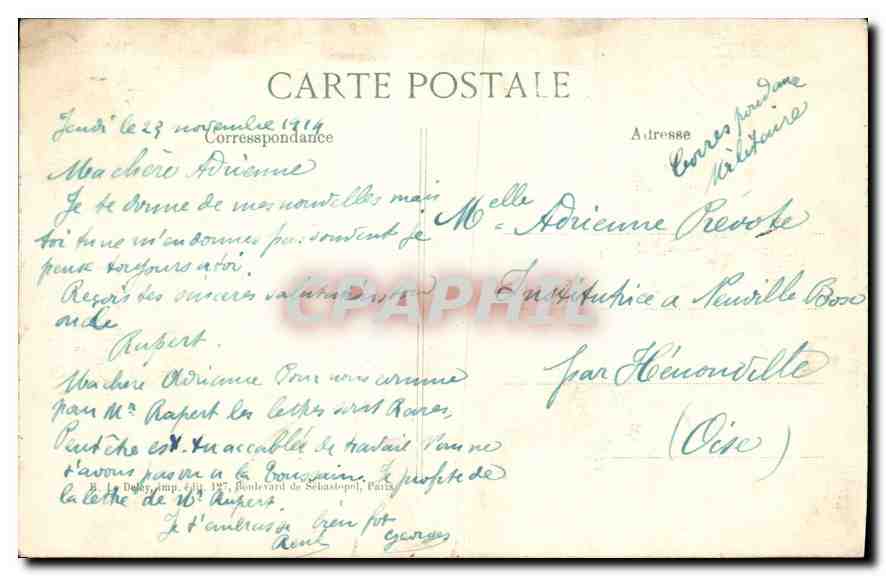 CARTE POSTALE
Jeudi le 23 novembre 1914
Corresspondance
Ma chère Adrienne
Je te donne de mes nouvelles mais
toi tu ne m'en donnes pas souvent je
pense toujours a toi.
Reçois tes sinceres salutations ton
oncle
Rupert.
Ma chere Adrienne Pour nous comme
pour Mr Rupert les lettres sont Rares,
Peut être es tu accablée de travail
t'avons pas vu a la Toussain. Je profite de
la lettre de Mr Rupert
Je t'embrasse bien fort
René Georges
E. Le Deley, imp. édit. 127, Boulevard de Sébastopol, Paris
Adresse
Correspondance
Militaire
Melle Adrienne Prévote
Institutrice a Neuville Bosc
par Hénonville
(Oise)
CPAPHIL